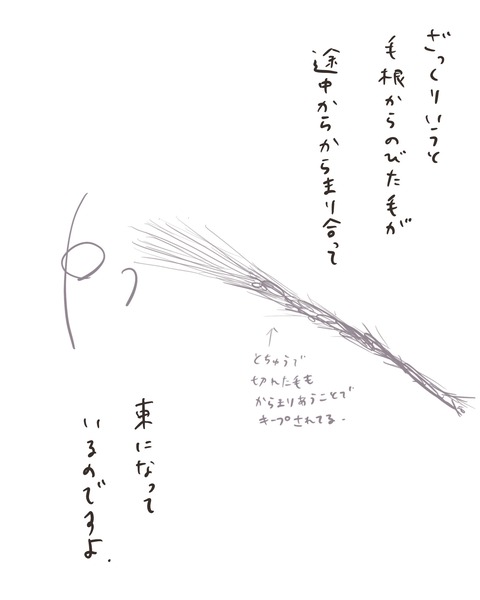 ざっくりいうと
毛根からのびた毛が
途中からからまり合って
とちゅうで
切れた毛も
からまりあうことで
キープされてる.
束になって
いるのですよ.